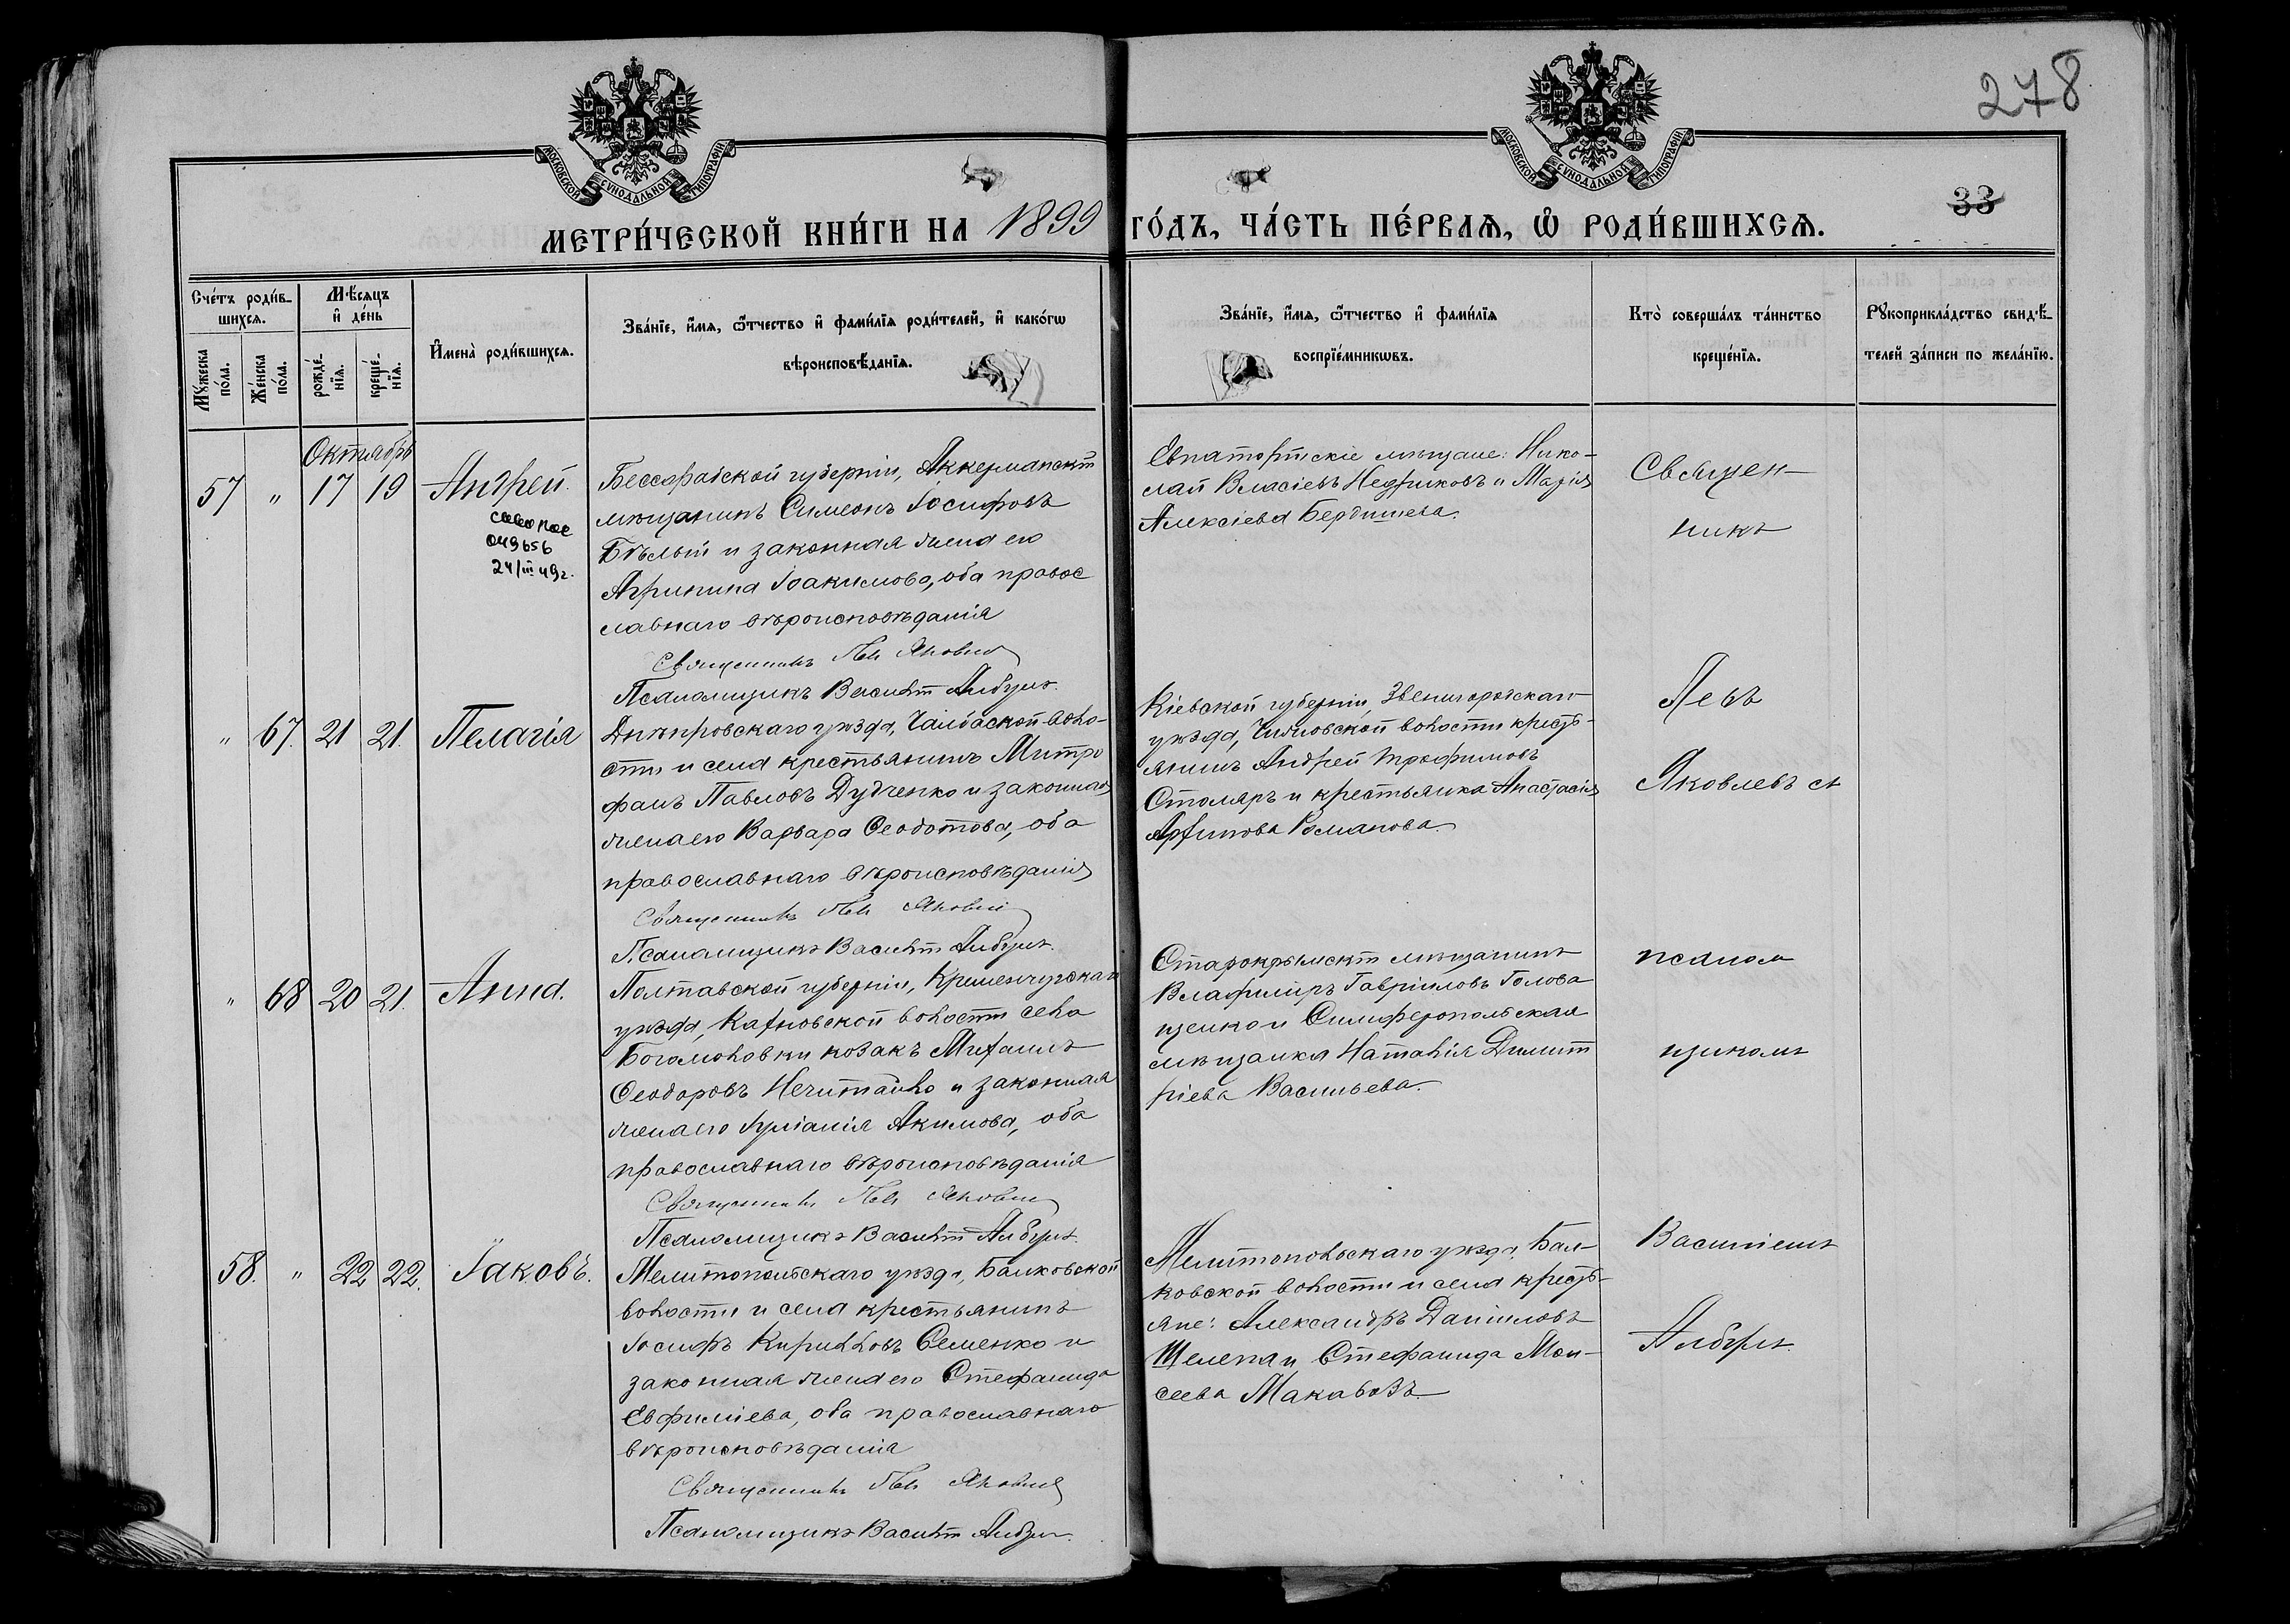 278
МОСКОВСКОЙ СѴНОДАЛЬНОЙ ТИПОГРАФІИ
МОСКОВСКОЙ СѴНОДАЛЬНОЙ ТИПОГРАФІИ
33
МЕТРИ́ЧЕСКОЙ КНИ́ГИ НА 1899 ГО́ДЪ, ЧА́СТЬ ПЕ́РВАѦ, Ѡ҆ РОДИ́ВШИХСѦ.
Сче́тъ роди́в-
шихсѧ.
Мꙋ́жеска
по́ла.
Же́нска
по́ла.
Мѣ́сѧцъ
и҆ де́нь
рожде́-
нїѧ.
креще́-
нїѧ.
И҆мена̀ роди́вшихсѧ.
Зва́нїе, и҆́мѧ, ѻ҆́тчество и҆ фами́лїѧ роди́телей, и҆ како́гѡ
вѣроисповѣ́данїѧ.
Зва́нїе, и҆́мѧ, ѻ҆́тчество и҆ фами́лїѧ
воспрїе́мникѡвъ.
Кто̀ соверша́лъ та́инство
креще́нїѧ.
Рꙋкоприкла́дство свидѣ́-
телей за́писи по жела́нїю.
Октябрь
57 " 17 19 Андрей.
049656
24/III 49г.
Бессарабской губерніи, Аккерманскій
мѣщанинъ Симеонъ Іосифовъ
Бѣлый и законная жена его
Агрипина Іоакимова, оба правос
лавнаго вѣроисповѣданія
Священникъ Левъ Яковлевъ
Псаломщикъ Василій
Евпаторійскіе мѣщане: Нико-
лай Власіевъ и Марія
Алексіева Бердышева.
" 67. 21 21. Пелагія
Днѣпровскаго уѣзда, Чалбаской воло-
сти и села крестьянинъ Митро
фанъ Павловъ Дудченко и законная
жена его Варвара Ѳеодотова, оба
православнаго вѣроисповѣданія
Священникъ Левъ Яковлевъ
Псаломщикъ Василій
Кіевской губерніи, Звенигородскаго
уѣзда, волости кресть-
янинъ Андрей Трофимовъ
Столяръ и крестьянка Анастасія
Романова.
" 68 20 21. Анна.
Полтавской губерніи, Кременчугскаго
уѣзда, волости села
Богомоловки козакъ Михаилъ
Ѳеодоровъ Нечитайло и законная
жена его Іуліанія Акимова, оба
православнаго вѣроисповѣданія
Священникъ Левъ Яковлевъ
Псаломщикъ Василій
Старокрымскій мѣщанинъ
Владиміръ Гавріиловъ Голова
щенко и Симферопольская
мѣщанка Наталія Димит
ріева Васильева.
58. " 22 22. Іаковъ.
Мелитопольскаго уѣзда, Балковской
волости и села крестьянинъ
Іосифъ Кирилловъ Семенко и
законная жена его Стефанида
Евфиміева, оба православнаго
вѣроисповѣданія
Священникъ Левъ Яковлевъ
Псаломщикъ Василій
Мелитопольскаго уѣзда, Бал-
ковской волости и села кресть-
яне: Александръ Даніиловъ
Шелепа и Стефанида Мои-
сеева
Священ-
никъ
Левъ
Яковлевъ съ
псалом
щикомъ
Василіемъ